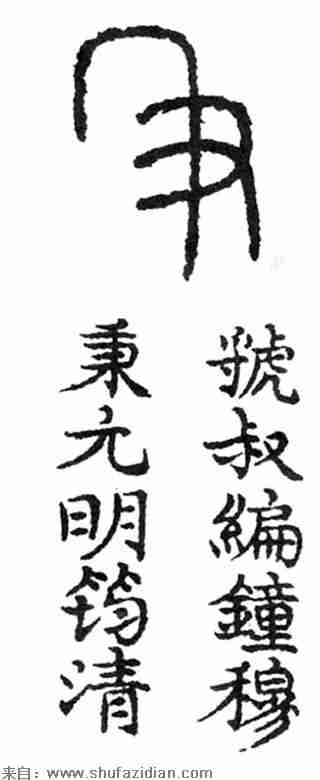 秉
虢叔編鐘穆
秉元明筠清
来自：www.shufazidian.com